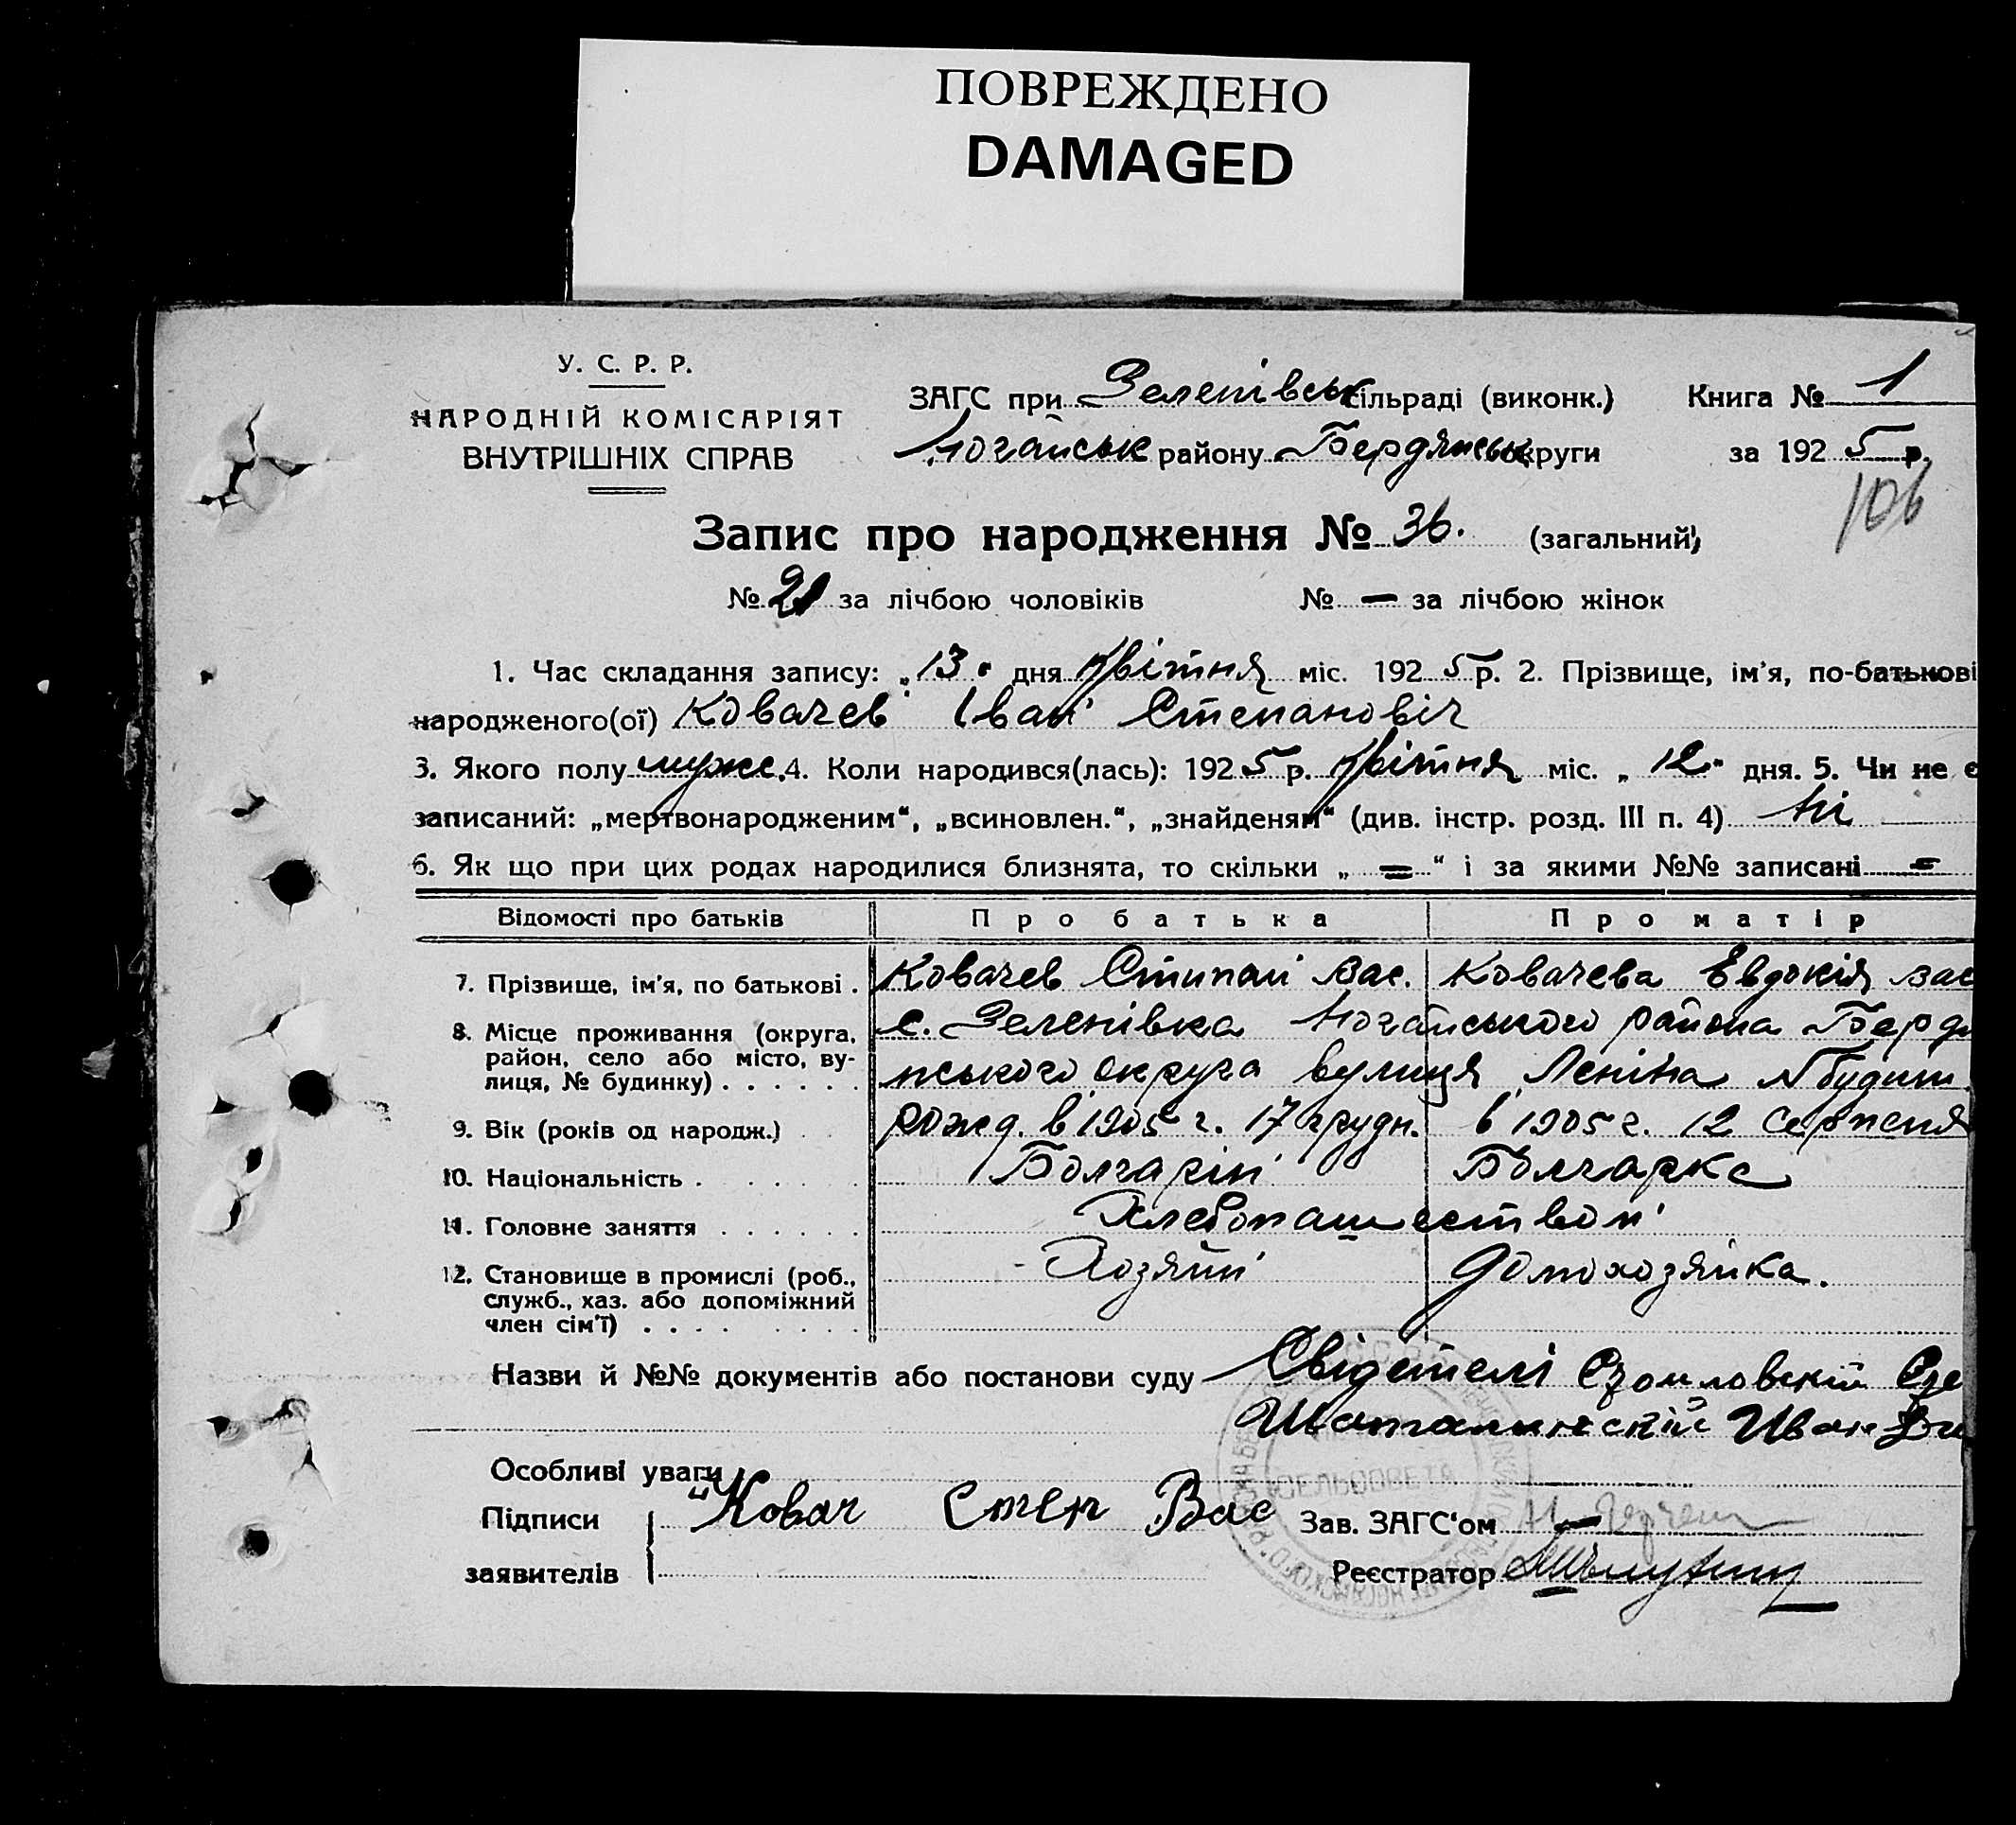 ПОВРЕЖДЕНО
DAMAGED
У. С. Р. Р.
НАРОДНІЙ КОМІСАРІЯТ
ВНУТРІШНІХ СПРАВ
ЗАГС при Зеленівськ сільраді (виконк.) Книга № 1
Ногайськ району Бердянськ округи за 192 5 р.
106
Запис про народження № 36. (загальний)
№ 21 за лічбою чоловіків № — за лічбою жінок
1. Час складання запису: „ 13 " дня Квітня міс. 192 5 р. 2. Прізвище, ім'я, по-батькові
народженого(ої) Ковачев Іван Степановіч
3. Якого полу мужс. 4. Коли народився(лась): 192 5 р. Квітня міс. „ 12 " дня. 5. Чи не є
записаний: „мертвонародженим“, „всиновлен.“, „знайденям“ (див. інстр. розд. III п. 4) Ні
6. Як що при цих родах народилися близнята, то скільки „ = “ і за якими №№ записані =
Відомості про батьків Про батька Про матір
7. Прізвище, ім'я, по батькові . Ковачев Стипан Вас. Ковачева Евдокія Вас
8. Місце проживання (округа, с. Зеленівка Ногайського района Бердя
район, село або місто, ву-
лиця, № будинку) . . . . . . нського округа вулиця Леніна № будин.
9. Вік (років од народж.) . . рожд. в 1905 г. 17 грудн. в 1905 г. 12 Серпеня
10. Національність . . . . . . Болгарін Болгарка
11. Головне заняття . . . . . . Хлебопашеством
12. Становище в промислі (роб., Хозяїн домохозяйка.
служб., хаз. або допоміжний
член сім'ї) . . . . . . . .
Назви й №№ документів або постанови суду Свідетелі
Иван
Особливі уваги
Підписи Ковач Степ Вас Зав. ЗАГС'ом
заявителів Реєстратор
СЕЛЬСОВЕТА